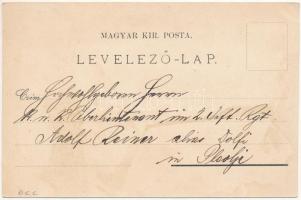 MAGYAR KIR. POSTA.
LEVELEZŐ-LAP.
Czim: Hochwohlgeboren Herrn
K. u. k. Oberlieutenant im 2. Rgt
Adolf Reiner alias Dolfi
in